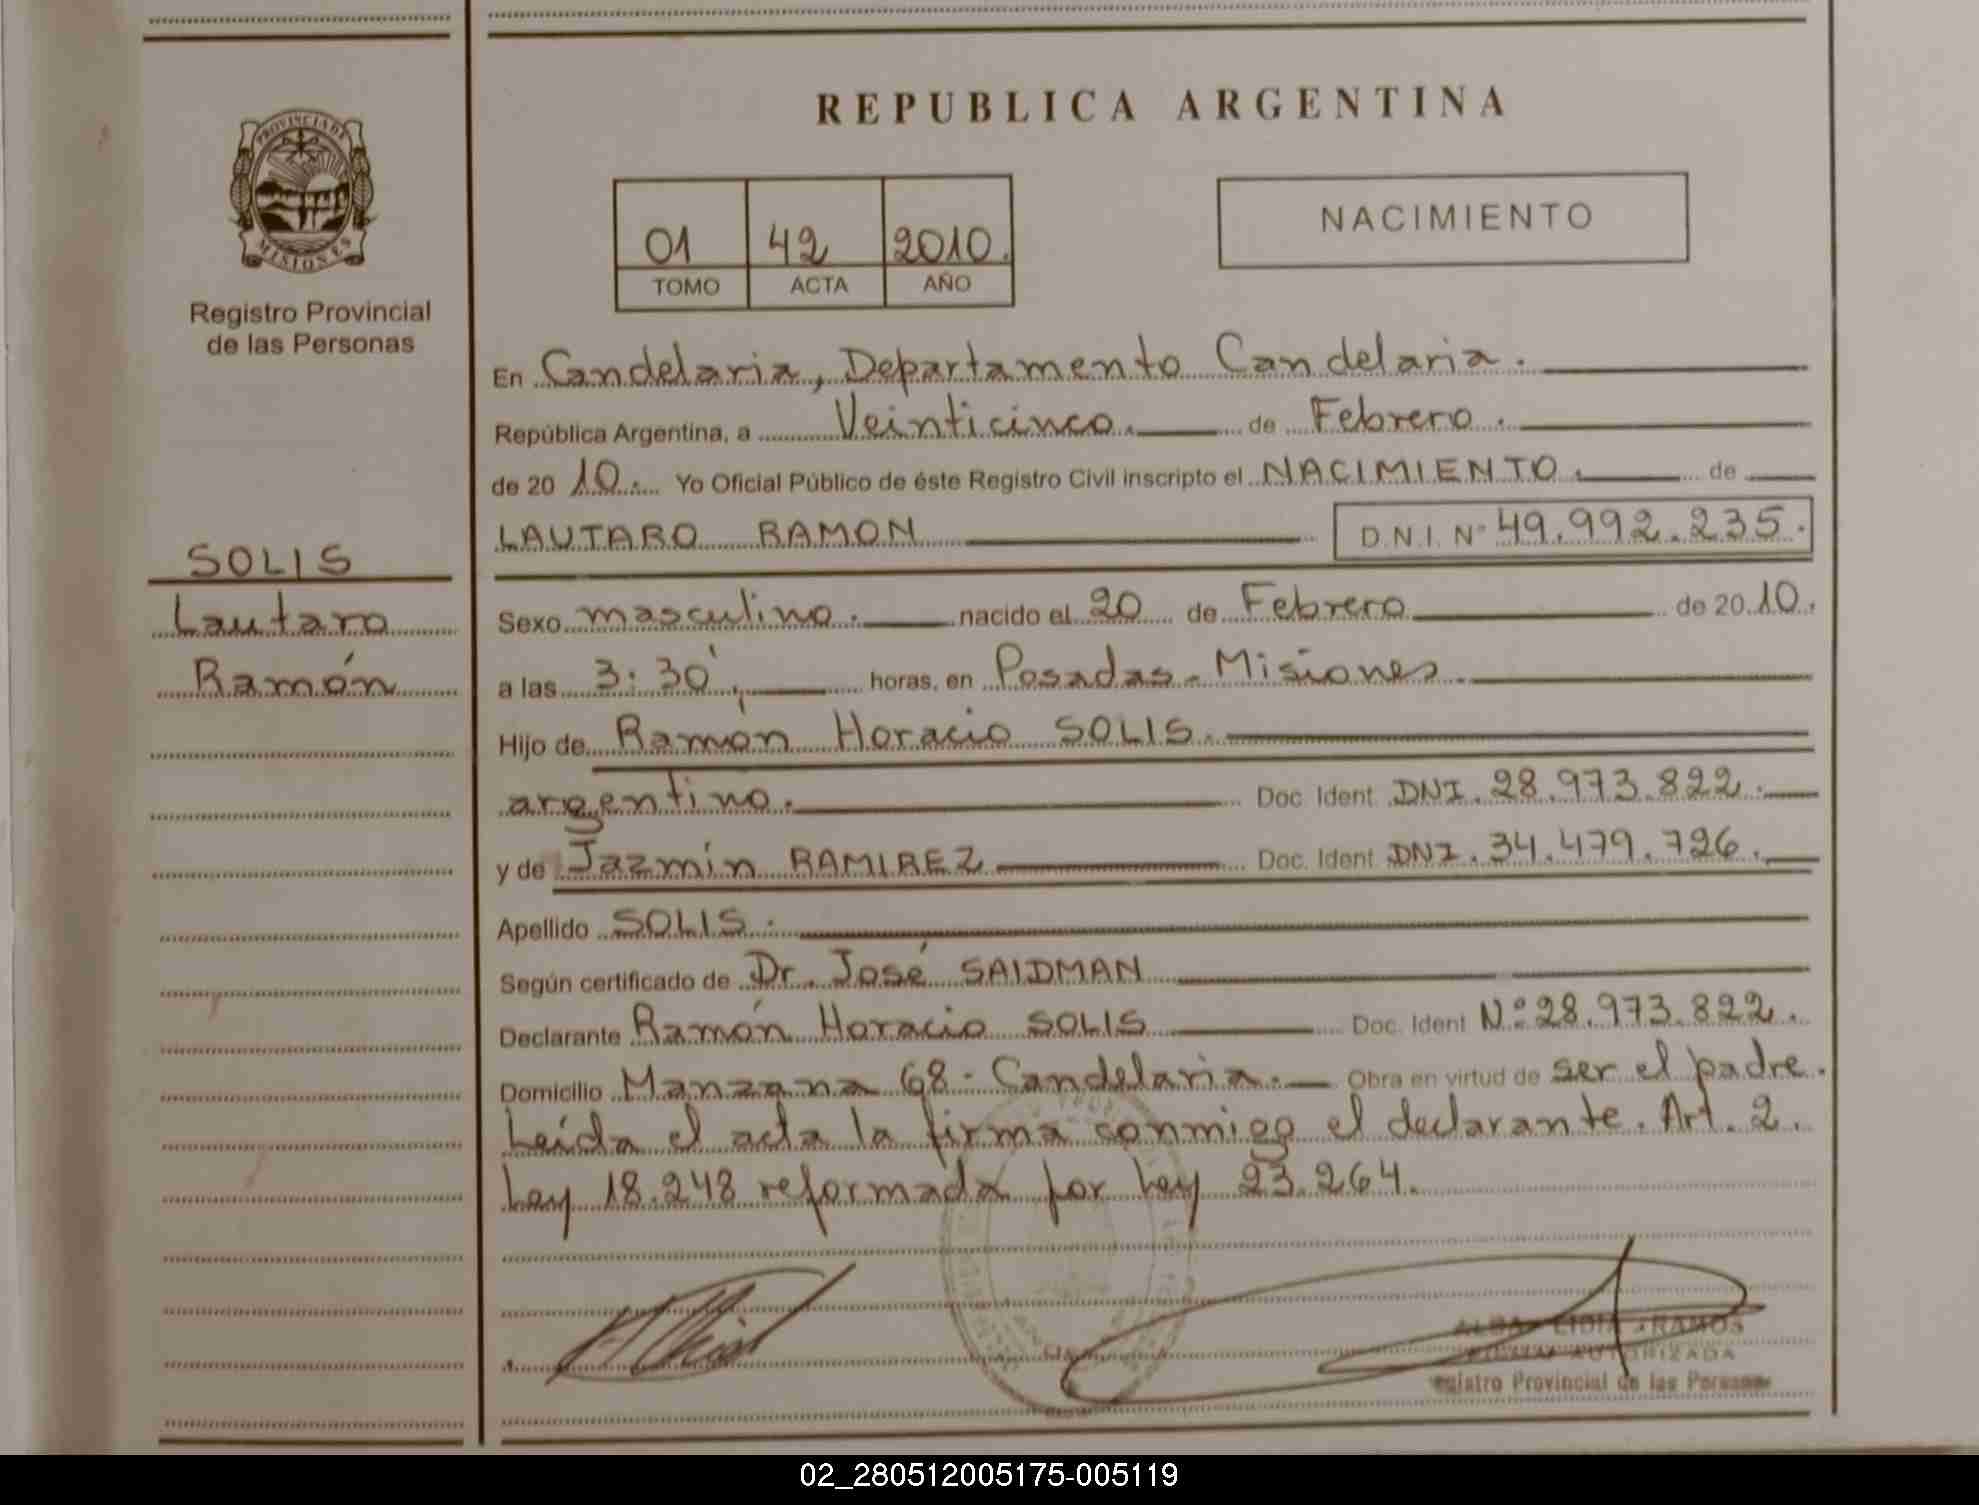 REPUBLICA ARGENTINA
PROVINCIA DE
MISIONES
Registro Provincial
de las Personas
01 42 2010.
TOMO ACTA AÑO
NACIMIENTO
SOLIS
Lautaro
Ramón
En Candelaria, Departamento Candelaria.
República Argentina, a Veinticinco. de Febrero.
de 20 10. Yo Oficial Público de éste Registro Civil inscripto el NACIMIENTO. de
LAUTARO RAMON D.N.I. Nº 49.992.235.
Sexo masculino. nacido el 20 de Febrero de 20 10.
a las 3:30', horas, en Posadas - Misiones.
Hijo de Ramón Horacio SOLIS.
argentino. Doc. Ident. DNI. 28.973.822.
y de Jazmín RAMIREZ Doc. Ident. DNI. 34.479.726.
Apellido SOLIS.
Según certificado de Dr. José SAIDMAN
Declarante Ramón Horacio SOLIS Doc. Ident Nº 28.973.822.
Domicilio Manzana 68 - Candelaria. Obra en virtud de ser el padre.
Leída el acta la firma conmigo el declarante. Art. 2.
Ley 18.248 reformada por Ley 23.264.
ALBA LIDIA RAMOS
AUTORIZADA
Registro Provincial de las Personas
02_280512005175-005119